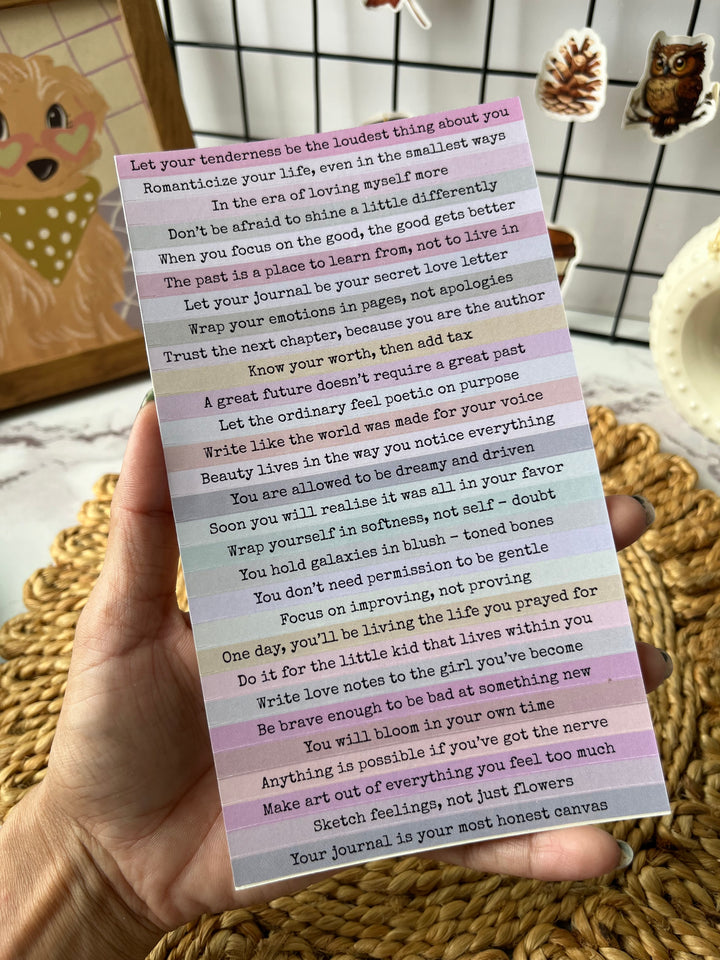 Let your tenderness be the loudest thing about you
Romanticize your life, even in the smallest ways
In the era of loving myself more
Don't be afraid to shine a little differently
When you focus on the good, the good gets better
The past is a place to learn from, not to live in
Let your journal be your secret love letter
Wrap your emotions in pages, not apologies
Trust the next chapter, because you are the author
Know your worth, then add tax
A great future doesn't require a great past
Let the ordinary feel poetic on purpose
Write like the world was made for your voice
Beauty lives in the way you notice everything
You are allowed to be dreamy and driven
Soon you will realise it was all in your favor
Wrap yourself in softness, not self - doubt
You hold galaxies in blush - toned bones
You don't need permission to be gentle
Focus on improving, not proving
One day, you'll be living the life you prayed for
Do it for the little kid that lives within you
Write love notes to the girl you've become
Be brave enough to be bad at something new
You will bloom in your own time
Anything is possible if you've got the nerve
Make art out of everything you feel too much
Sketch feelings, not just flowers
Your journal is your most honest canvas